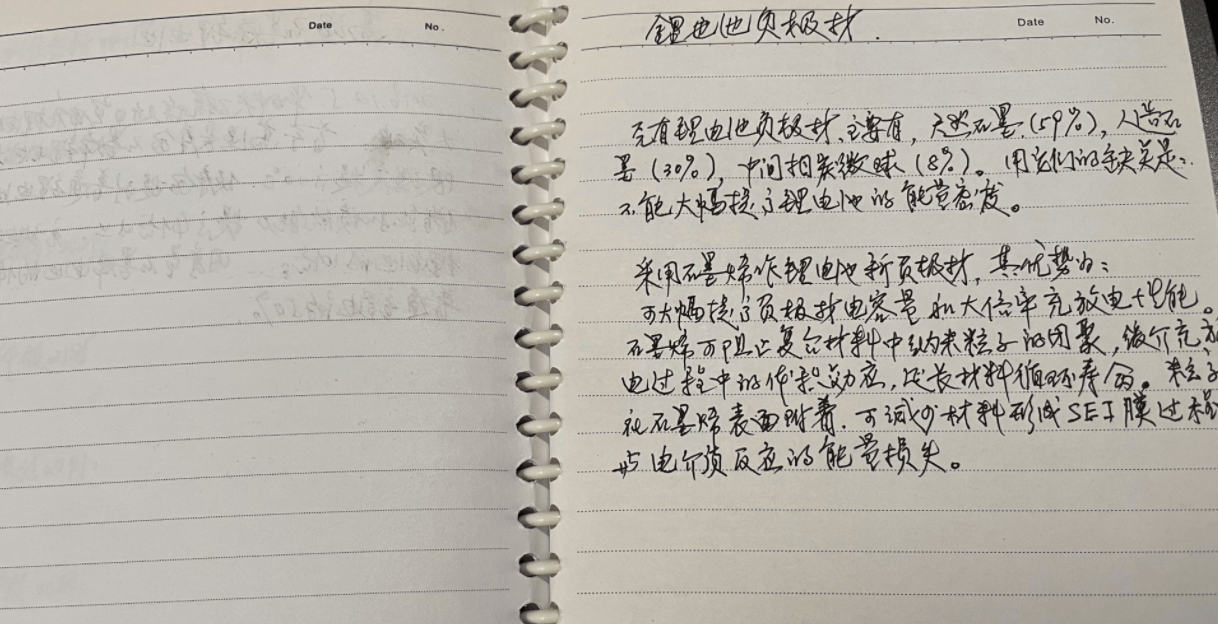 Date No.
Date No.
锂电池负极材.
现有锂电池负极材,主要有,天然石墨(59%),人造石
墨(30%),中间相炭微球(8%)。用它们的缺点是:
不能大幅提高锂电池的能量密度。
采用石墨烯作锂电池新负极材,其优势为:
可大幅提高负极材电容量和大倍率充放电性能。
石墨烯可阻止复合材料中纳米粒子的团聚,缓介充放
电过程中的体积效应,延长材料循环寿命。粒子
在石墨烯表面附着.可减少材料形成SEI膜过程
与电介质反应的能量损失。